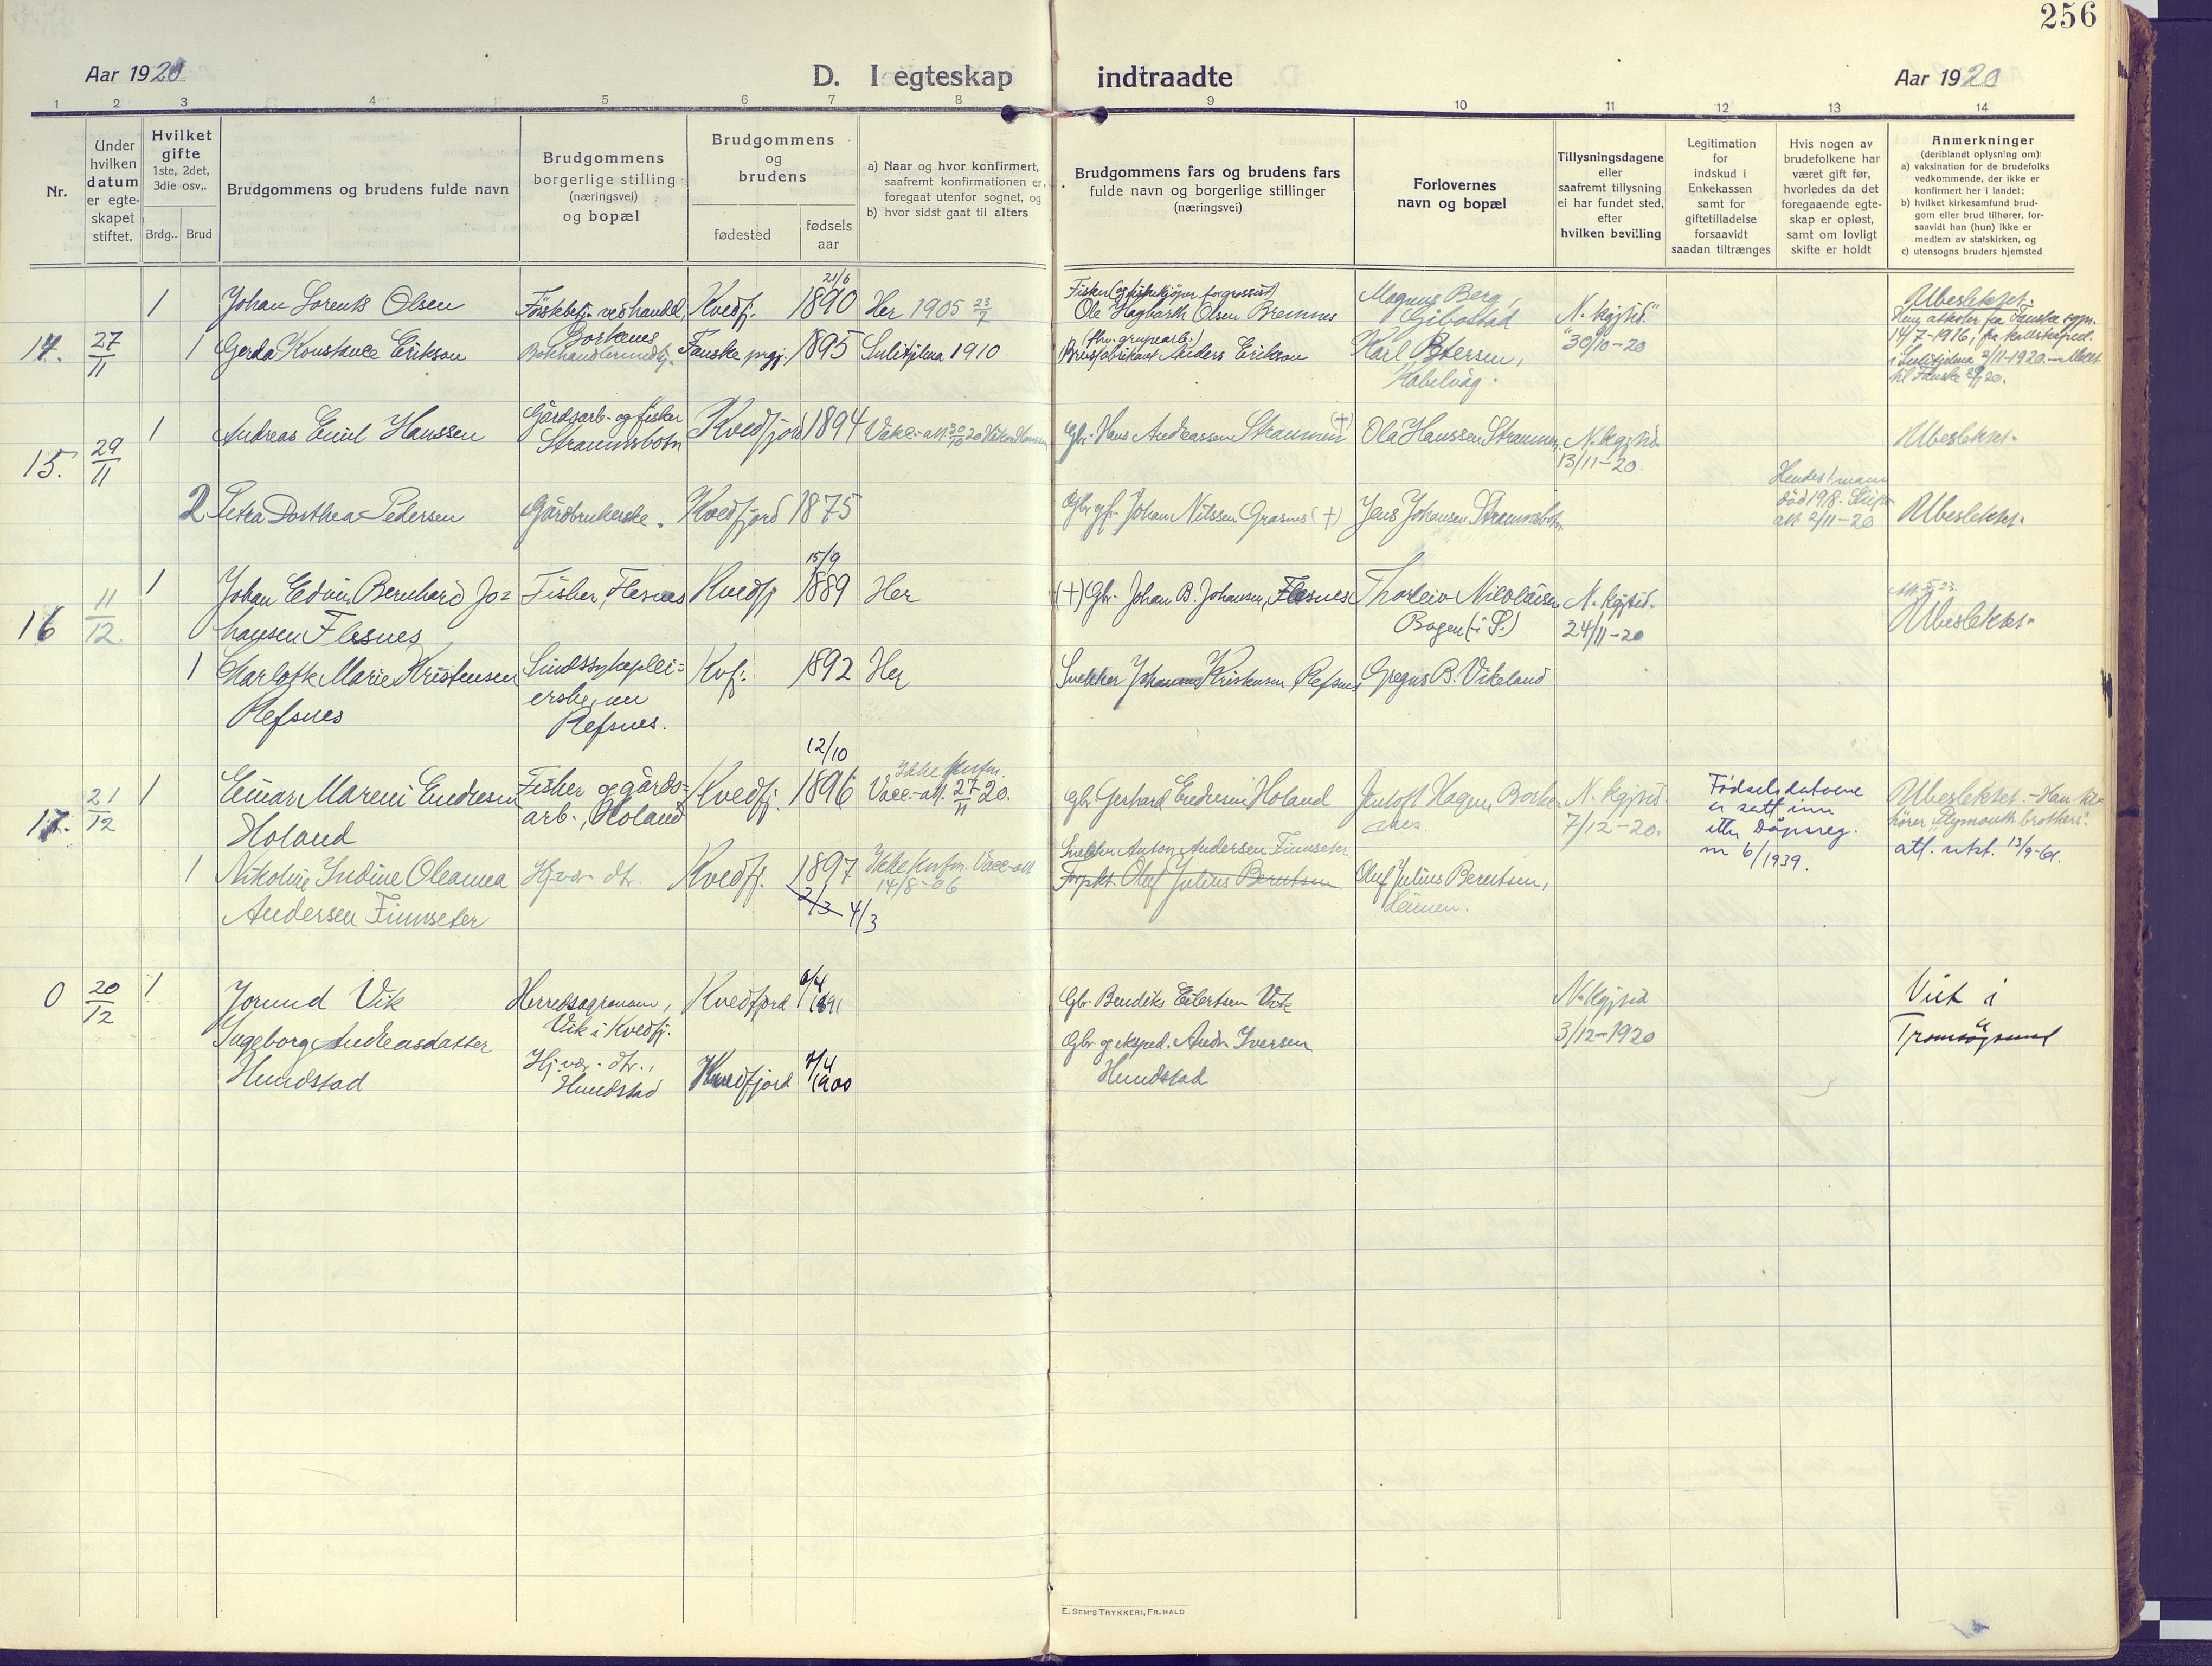 256
Aar 1920
D. I egteskap indtraadte
Aar 1920
1 2 3 4 5 6 7 8 9 10 11 12 13 14
Nr.
Under
hvilken
datum
er egte-
skapet
stiftet.
Hvilket
gifte
1ste, 2det,
3die osv,.
Brdg.. Brud
Brudgommens og brudens fulde navn
Brudgommens
borgerlige stilling
(næringsvei)
og bopæl
Brudgommens
og
brudens
fødested
fødsels
aar
a) Naar og hvor konfirmert,
saafremt konfirmationen er
foregaat utenfor sognet, og
b) hvor sidst gaat til alters
Brudgommens fars og brudens fars
fulde navn og borgerlige stillinger
(næringsvei)
Forlovernes
navn og bopæl
Tillysningsdagene
eller
saafremt tillysning
ei har fundet sted,
efter
hvilken bevilling
Legitimation
for
indskud i
Enkekassen
samt for
giftetilladelse
forsaavidt
saadan tiltrænges
Hvis nogen av
brudefolkene har
været gift før,
hvorledes da det
foregaaende egte-
skap er opløst,
samt om lovligt
skifte er holdt
Anmerkninger
(deriblandt oplysning om):
a) vaksination for de brudefolks
vedkommende, der ikke er
konfirmert her i landet;
b) hvilket kirkesamfund brud-
gom eller brud tilhører, for-
saavidt han (hun) ikke er
medlem av statskirken, og
c) utensogns bruders hjemsted
14. 27/11
1 Johan Lorents Olsen
Borkenes
Kvedfj. 21/6 1890
Her 1905 23/7
Ole Hagbarth Olsen Bremnes
Magnus Berg,
Gibostad
N. kgjsid.
30/10-20
Ubeslektet.
1 Gerda Konstance Erikson
Fauske prgj. 1895
Sulitjelma 1910
Anders Erikson
Karl Petersen,
Kabelvåg.
14/7-1916,
i Sulitjelma 2/11-1920.
15. 29/11
1 Andreas Emil Hanssen
Gårdsarb- og fisker
Straumsbotn
Kvedfjord 1894
Gbr. Hans Andreassen Straumen (+)
Ola Hanssen Straumen
N. kgjsid.
13/11-20.
Ubeslektet.
2 Petra Dorthea Pedersen
Gårdbrukerske.
Kvedfjord 1875
Johan Nilssen Grasnes (+)
Jens Johansen Straumsbotn
2/11-20
Ubeslektet.
16 11/12.
1 Johan Edvin Bernhard Jo=
hansen Flesnes
Fisker, Flesnes
Kvedfj 15/9 1889
Her
(+) Gbr. Johan B. Johansen, Flesnes
Thorleiv Nikolaisen
Bogen (i S.)
N. kgjsid.
24/11-20
Ubeslektet.
1 Charlotte Marie Kristensen
Refsnes
Sindssykeplei=
erske, nu
Refsnes.
Kvfj. 1892
Her
Snekker Johannes Kristensen Refsnes
Gregus B. Vikeland
17. 21/12
1 Einar Mareni Endresen
Holand
Fisker og gårds=
arb., Holand
Kvedfj. 12/10 1896
Ikke konfm.
Vacc.-att. 27/11 20.
Gbr Gerhard Endresen Holand
Jentoft Hagnes Borke
nes
N. kgjsid.
7/12-20.
Fødselsdatoene
er satt inn
etter Dåpsreg.
nr 6/1939.
Ubeslektet. - Han til=
hører "Plymouth brothers".
att. utst. 13/9-61.
1 Nikoline Indine Oleanea
Andersen Finnseter
Hj.vær. dtr.
Kvedfj. 1897
2/3 4/3
Ikke konfm. Vacc-att
14/8-06
Snekker Anton Andersen Finnseter
Forpkt. Oluf Julius Berntsen
Oluf Julius Berntsen,
0 20/12
1 Jorund Vik
Herredsagronom,
Vik i Kvedfj.
Kvedfjord 1891
Gbr. Bendiks Eilertsen Vik
N. kgjsid
3/12-1920
Viet i
Tromsøysund
Ingeborg Andreasdatter
Hundstad
Hj.vær. dtr.,
Hundstad
Kvedfjord 7/4 1900
Gbr og eksped. Andr. Iversen
Hundstad
E. SEM'S TRYKKERI, FR.HALD